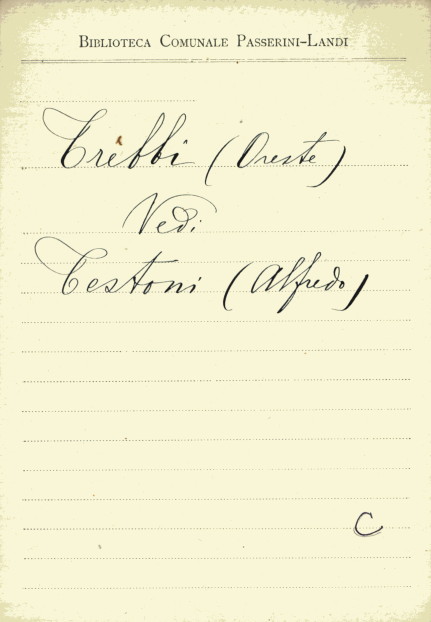 BIBLIOTECA COMUNALE PASSERINI-LANDI
Trebbi (Oreste)
Vedi
Testoni (Alfredo)
C